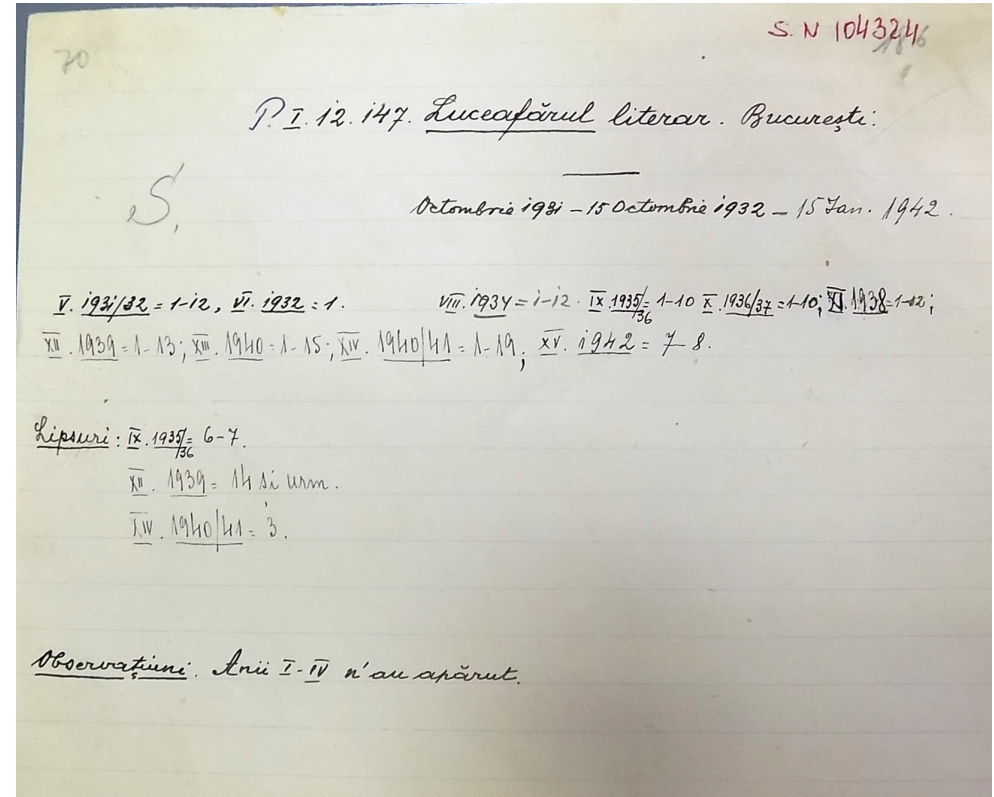 S. N 104324
70
P. I. 12. 147. Luceafărul literar. București.
S,
Octombrie 1931 – 15 Octombrie 1932 – 15 Ian. 1942.
V. 1931/32 = 1-12, VI. 1932 = 1. VIII. 1934 = 1-12. IX 1935/36 = 1-10 X. 1936/37 = 1-10; XI. 1938 = 1-12;
XII. 1939 = 1-13; XIII. 1940 = 1-15; XIV. 1940/41 = 1-19; XV. 1942 = 7-8.
Lipsuri: IX. 1935/36 = 6-7.
XII. 1939 = 14 si urm.
XIV. 1940/41 = 3.
Observațiuni. Anii I-IV n'au apărut.